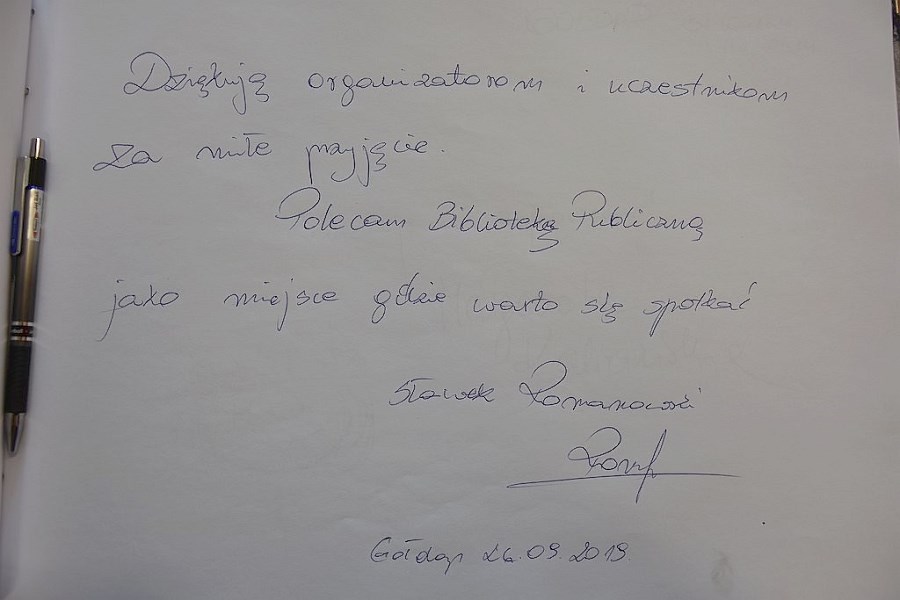 Dziękuję organizatorom i uczestnikom
za miłe przyjęcie.
Polecam Bibliotekę Publiczną
jako miejsce gdzie warto się spotkać
Sławek Romanowski
Gołdap 26.09.2019